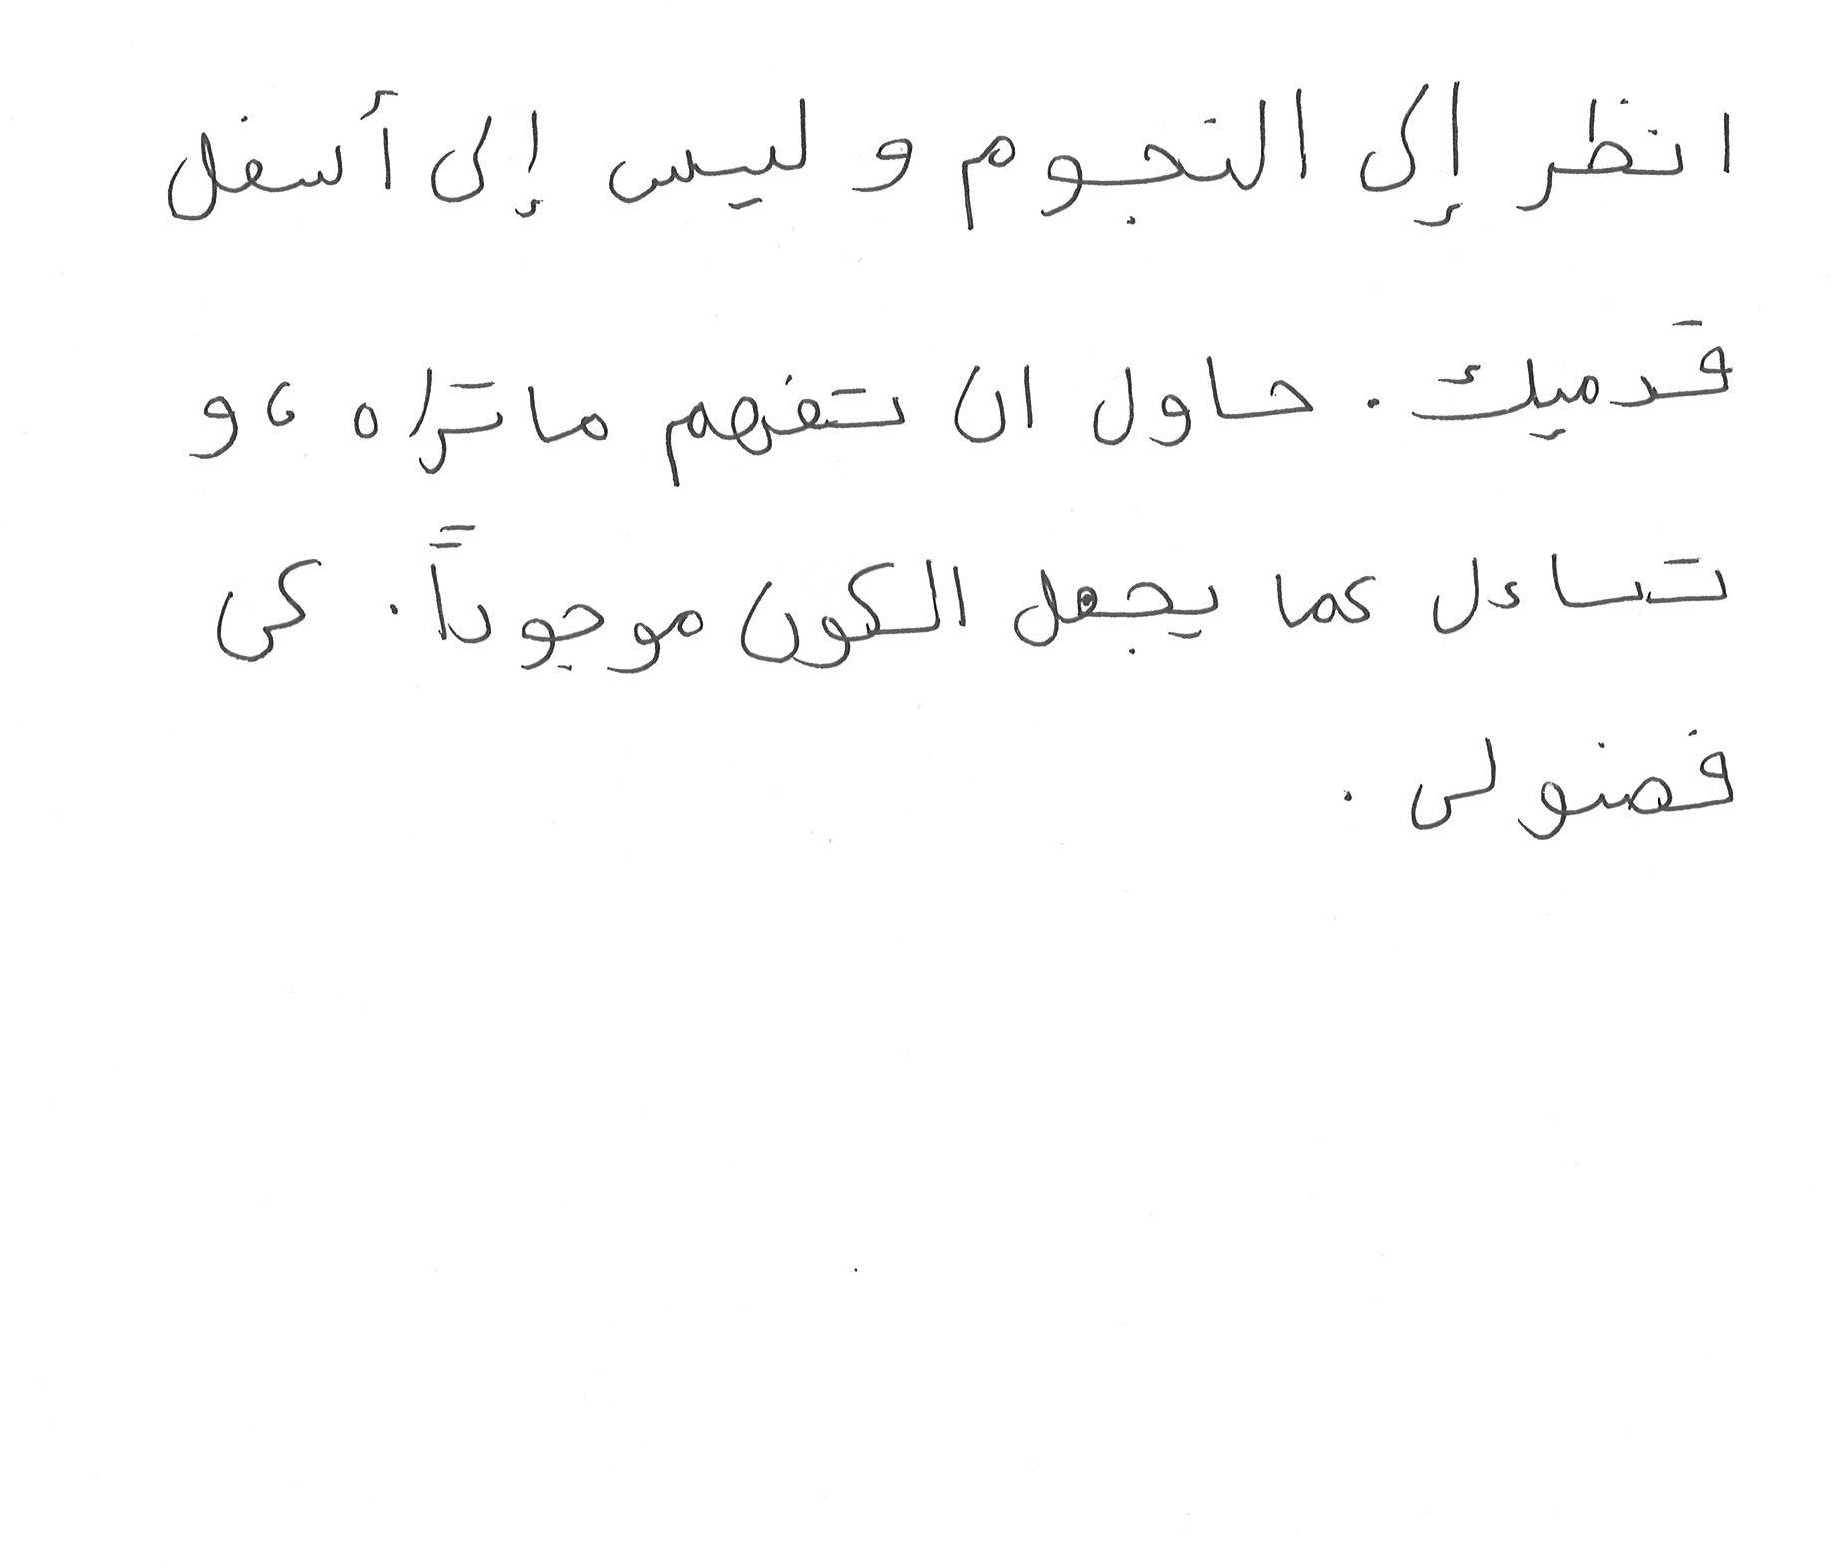 انظر إلى النجوم و ليس إلى أسفل
قدميك . حاول ان تفهم ماتراه ، و
تساءل عما يجعل الكون موجوداً . كن
فضولى .